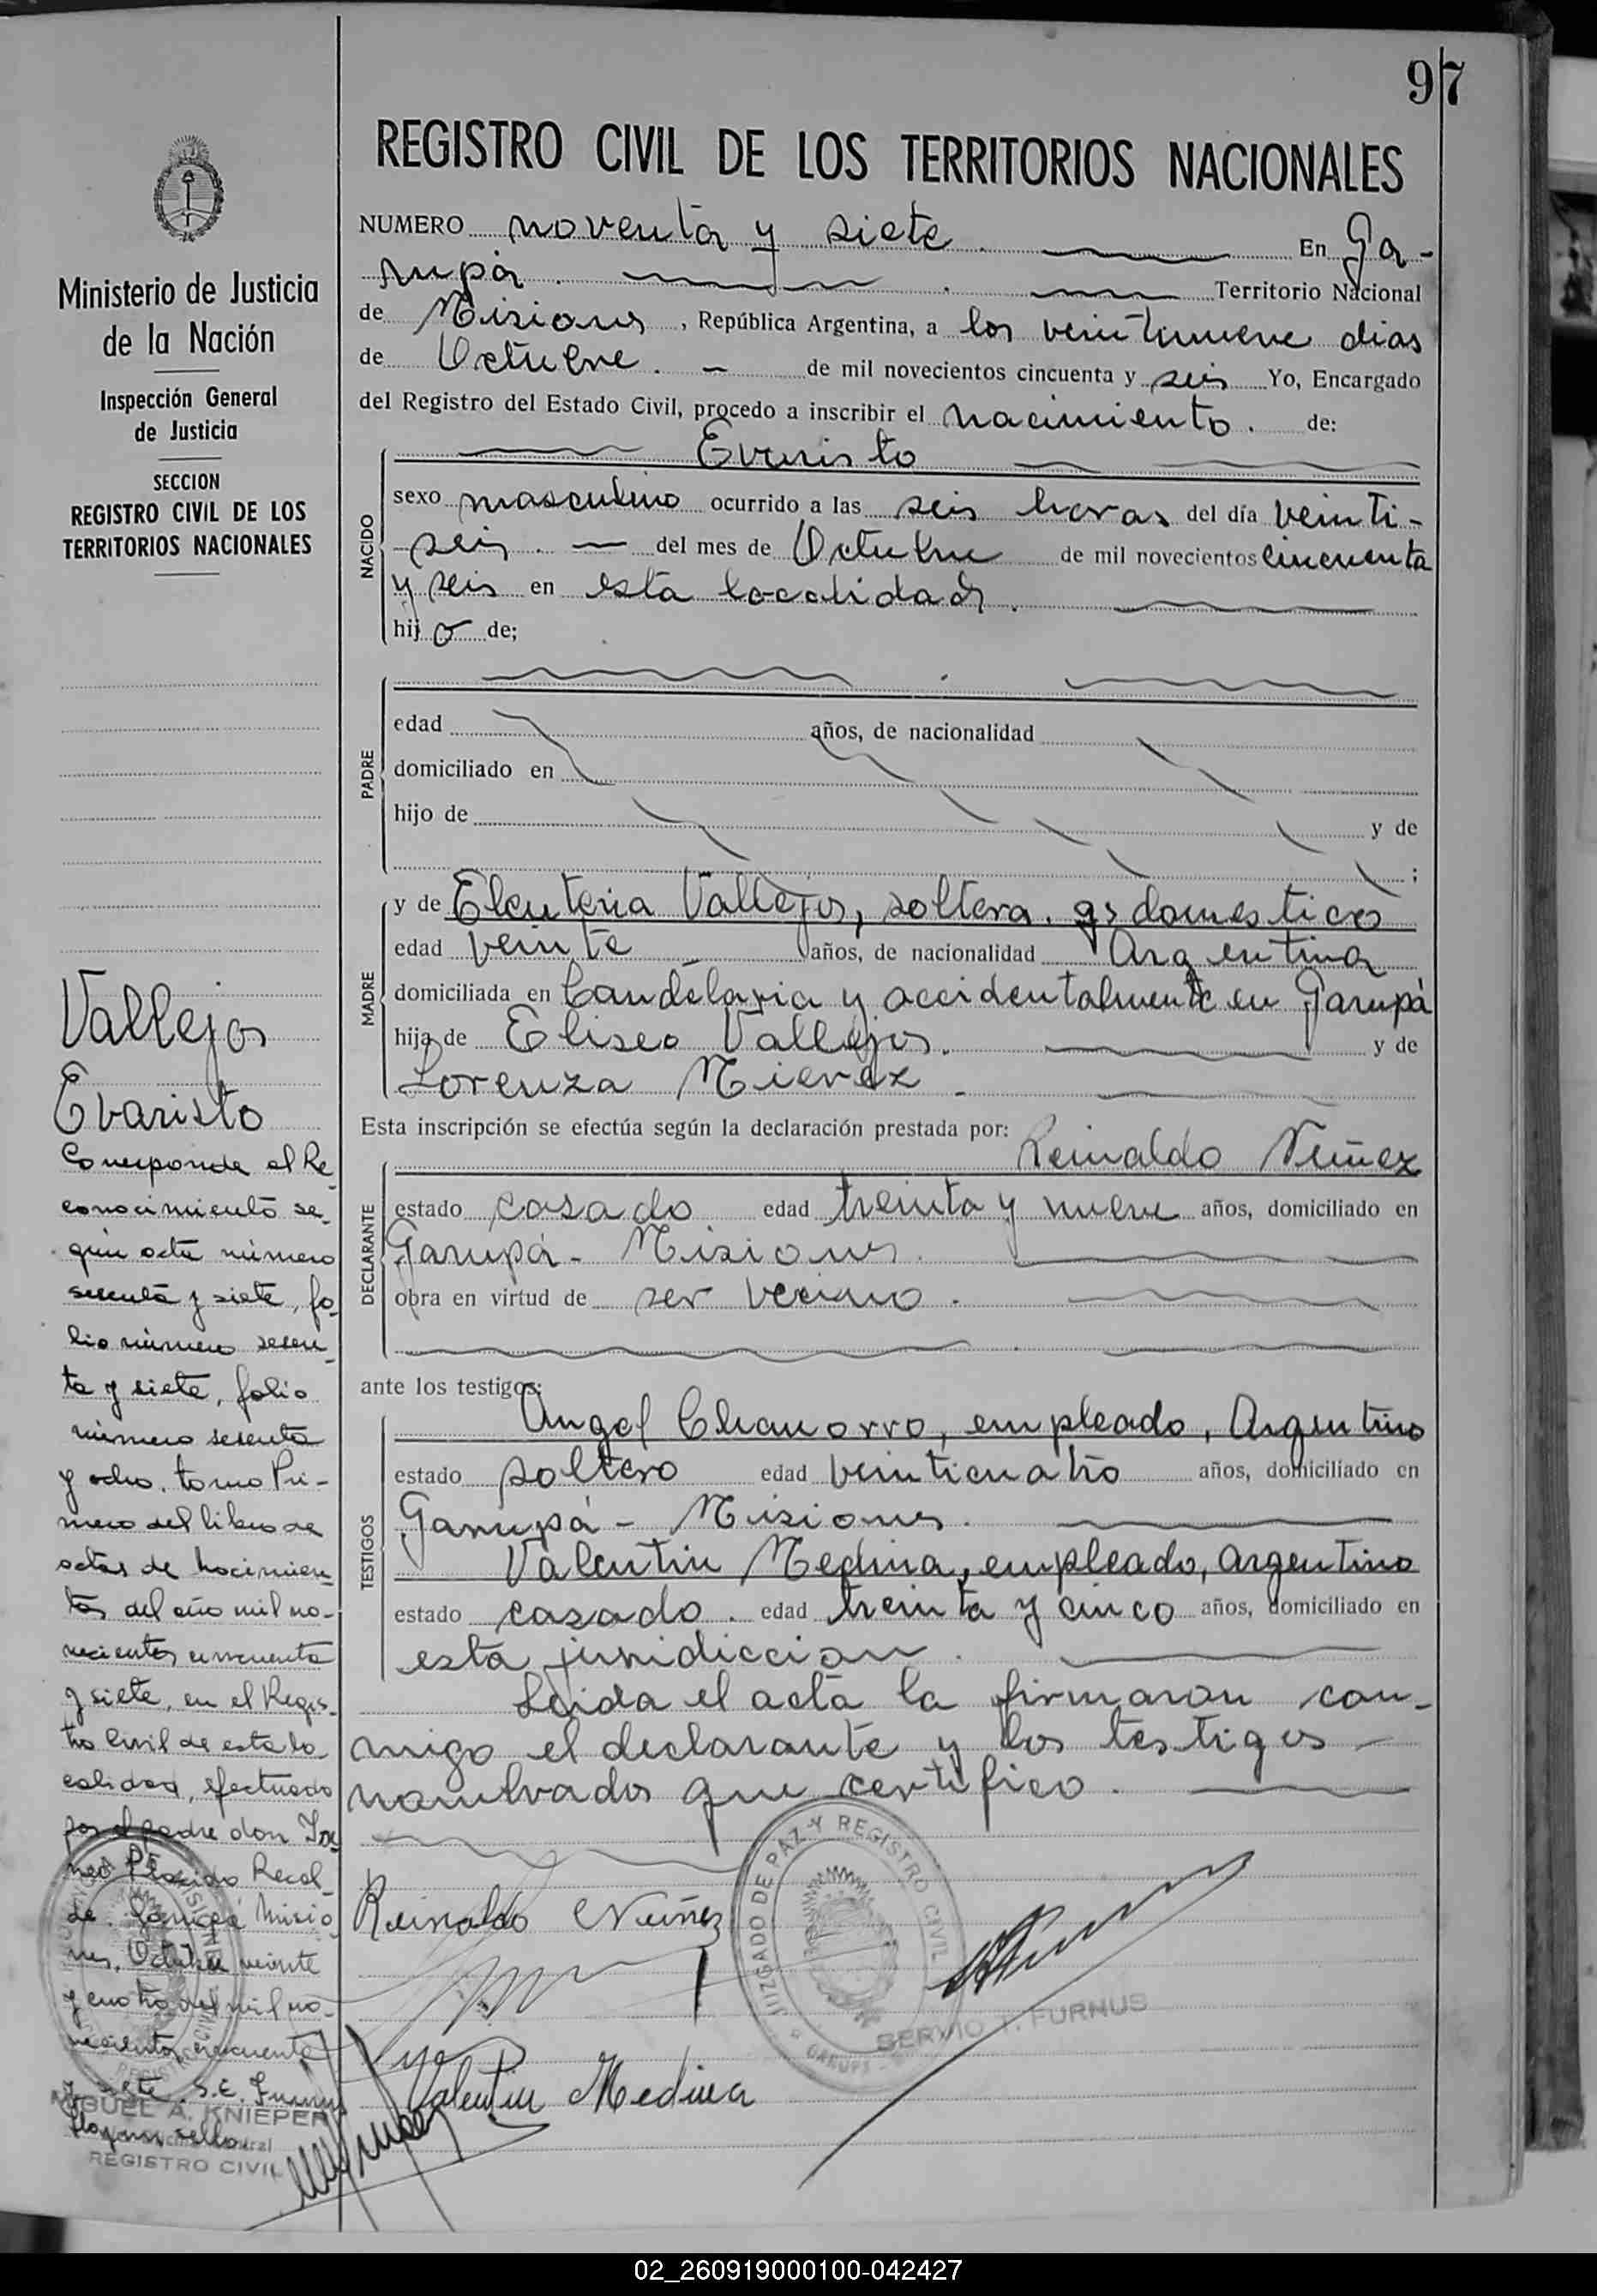 97
REGISTRO CIVIL DE LOS TERRITORIOS NACIONALES
Ministerio de Justicia
de la Nación
Inspección General
de Justicia
SECCION
REGISTRO CIVIL DE LOS
TERRITORIOS NACIONALES
Vallejos
Evaristo
Corresponde al Re_
conocimiento se_
gún acta número
sesenta y siete, fo_
lio número sesen_
ta y siete, folio
número sesenta
y ocho, tomo Pri-
mero del libro de
actas de nacimien_
tos del año mil no-
vecientos cincuenta
y siete, en el Regis_
tro Civil de esta lo_
calidad, efectuado
por el padre don
Recal_
de. Garupá Misio_
nes, Octubre veinte
y cuatro del mil no-
vecientos cincuenta
y siete. S.E.
Hay un sello.
MIGUEL A. KNIEPER
REGISTRO CIVIL
NUMERO noventa y siete. En Ga-
rupá. Territorio Nacional
de Misiones, República Argentina, a los veintinueve dias
de Octubre. - de mil novecientos cincuenta y seis Yo, Encargado
del Registro del Estado Civil, procedo a inscribir el nacimiento. de:
NACIDO
Evaristo
sexo masculino ocurrido a las seis horas del día veinti-
seis. - del mes de Octubre de mil novecientos cincuenta
y seis en esta localidad.
hijo de;
PADRE
edad años, de nacionalidad
domiciliado en
hijo de y de
;
MADRE
y de Eleuteria Vallejos, soltera. qs domesticos
edad veinte años, de nacionalidad Argentina
domiciliada en Candelaria y accidentalmente en Garupá
hija de Eliseo Vallejos. y de
Lorenza Mierez
Esta inscripción se efectúa según la declaración prestada por: Reinaldo Núñez
DECLARANTE
estado casado edad treinta y nueve años, domiciliado en
Garupá - Misiones.
obra en virtud de ser vecino.
ante los testigos:
TESTIGOS
Angel Chamorro, empleado, Argentino
estado soltero edad veinticuatro años, domiciliado en
Garupá - Misiones.
Valentin Medina, empleado, argentino
estado casado. edad treinta y cinco años, domiciliado en
esta jurisdiccion.
Leida el acta la firmaron con-
migo el declarante y los testigos
nombrados que certifico.
Reinaldo Núñez
JUZGADO DE PAZ Y REGISTRO CIVIL
GARUPA
SERVIO T. FURNUS
Valentin Medina
02_260919000100-042427